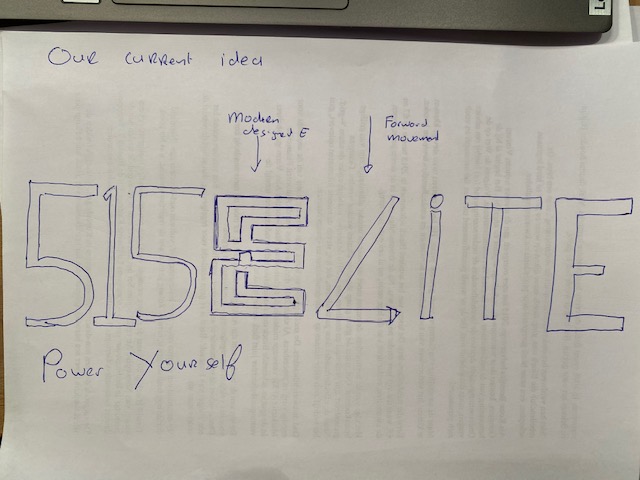 Our current idea
Modern designed E
Forward movement
515 ELiTE
Power Yourself